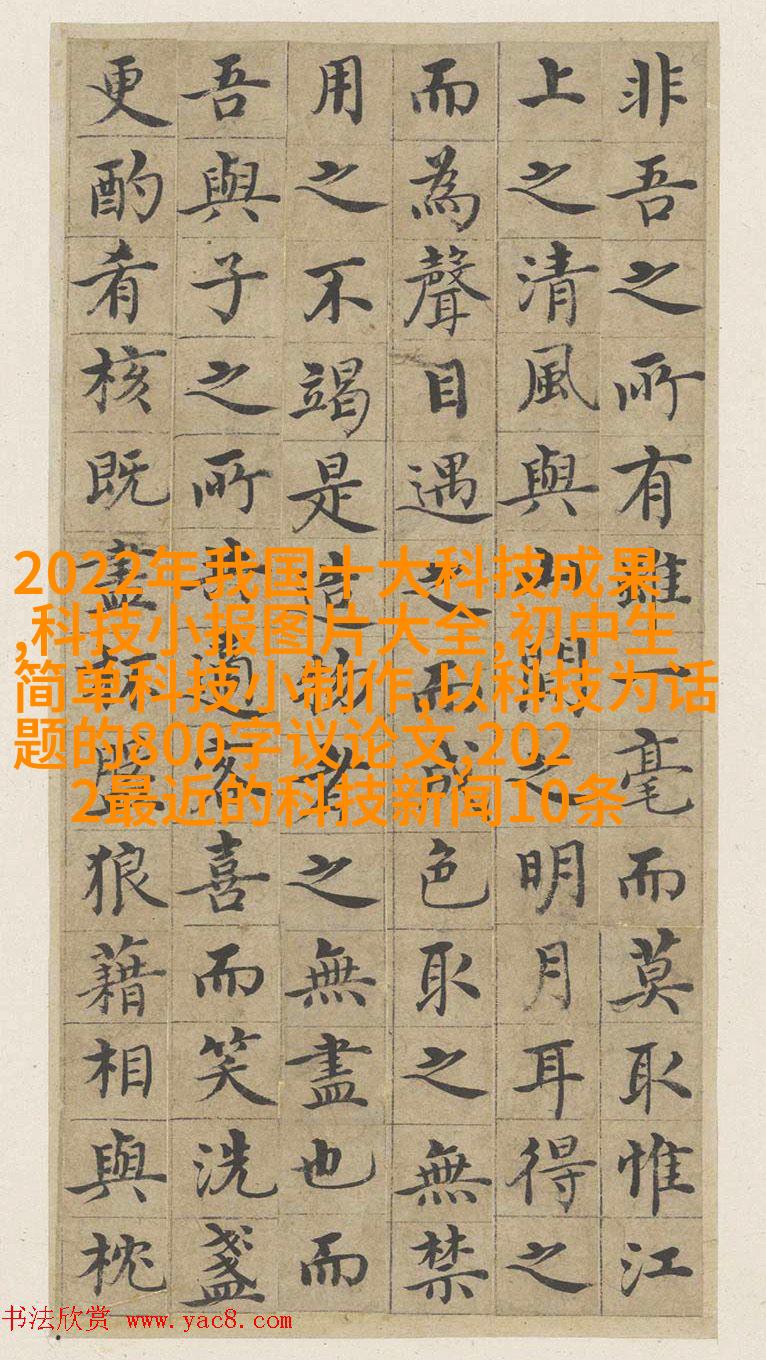 非吾之所有雖一毫而莫取惟江
上之清風與山間之明月耳得之
而為聲目遇之而成色取之無禁
用之不竭是造物者之無盡也而
吾與子之所適客喜而笑洗盞
更酌肴核既盡杯盤狼藉相與枕
2022年我国十大科技成果
,科技小报图片大全,初中生
简单科技小制作,以科技为话
题的800字议论文,202
2最近的科技新闻10条
书法欣赏 www.yac8.com